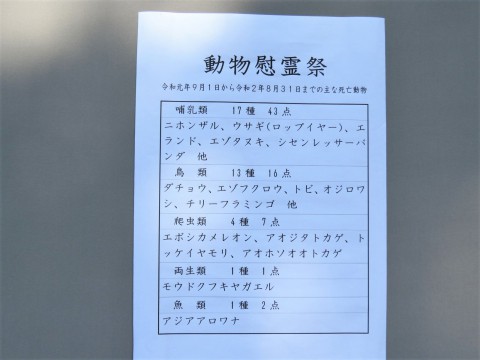 動物慰霊祭
令和元年9月1日から令和2年8月31日までの主な死亡動物
哺乳類　17種　43点
ニホンザル、ウサギ(ロップイヤー)、エ
ランド、エゾタヌキ、シセンレッサーパ
ンダ　他
鳥　類　13種　16点
ダチョウ、エゾフクロウ、トビ、オジロワ
シ、チリーフラミンゴ　他
爬虫類　4種　7点
エボシカメレオン、アオジタトカゲ、ト
ッケイヤモリ、アオホソオオトカゲ
両生類　1種　1点
モウドクフキヤガエル
魚　類　1種　2点
アジアアロワナ